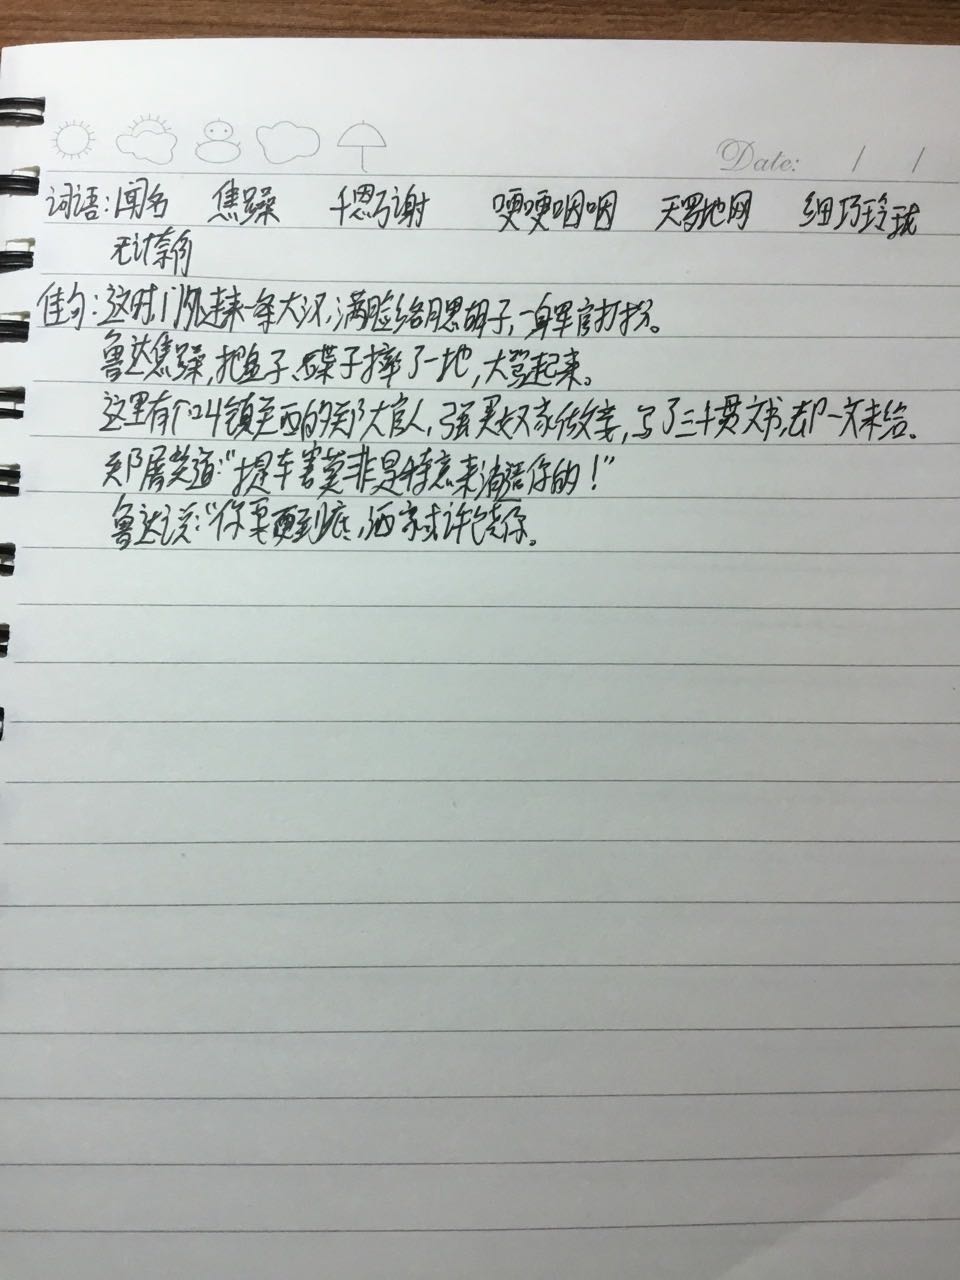 Date: / /
词语:闻名 焦躁 千恩万谢 哽哽咽咽 天罗地网 细巧玲珑
无计奈何
佳句:这时,门外进来一条大汉,满脸络腮胡子,一身军官打扮。
鲁达焦躁,把盘子、碟子摔了一地,大骂起来。
这里有个叫镇关西的郑大官人,强买奴家做妾,写了三千贯文书,却一文未给。
郑屠笑道:“提辖莫非是特意来消遣你的!”
鲁达说:“你要硬到底,洒家或许饶你。